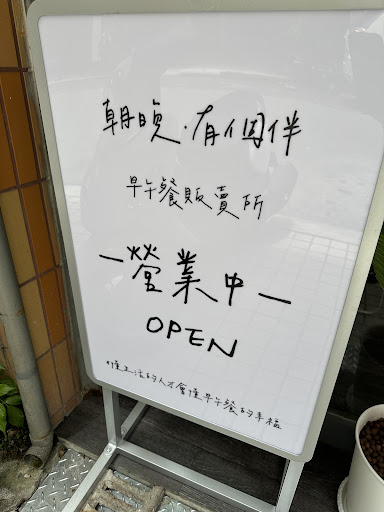 朝晚·有個伴
早午餐販賣所
—營業中—
OPEN
#懂生活的人才會懂早午餐的幸福